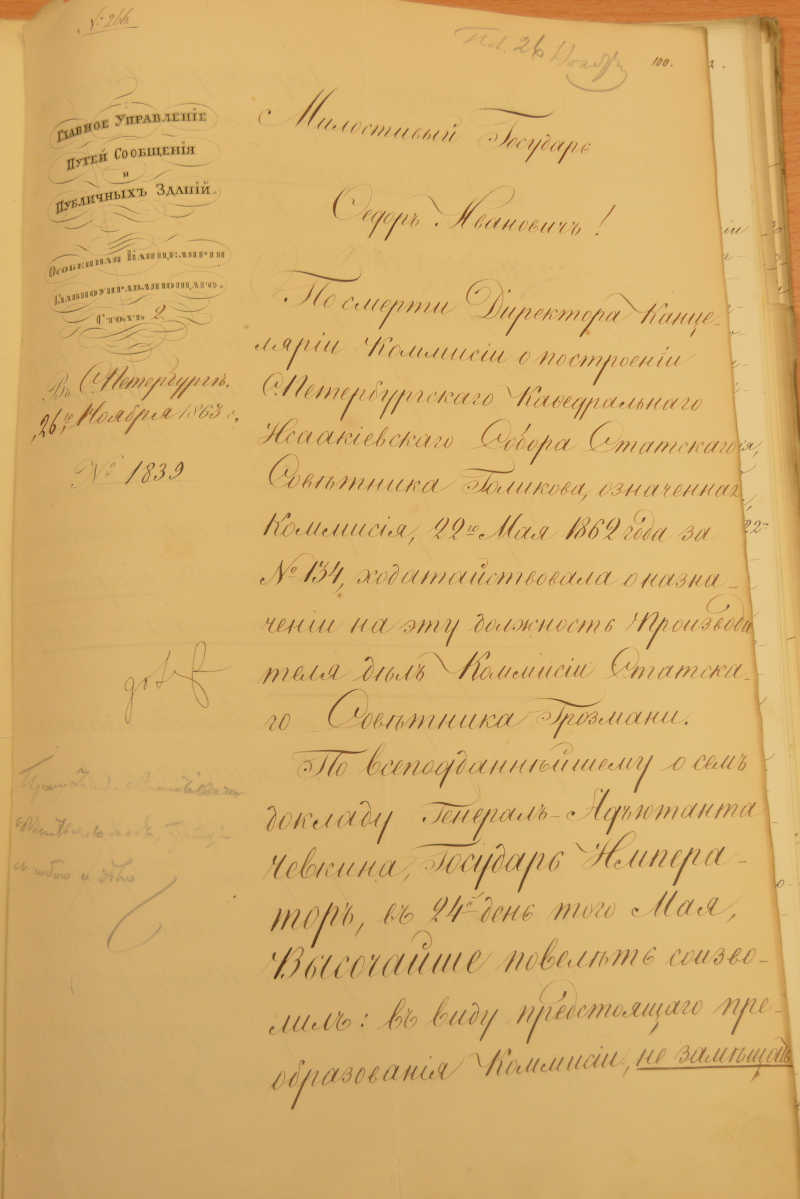 № 266
Пол. 26 Ноябр
100.
Главное Управленіе
Путей Сообщенія
и
Публичныхъ Зданій.
Особенная Канцелярія
Главноуправляющаго.
Столъ 2
Въ С.Петербургѣ.
„26го„ Ноября 1863 г.
№ 1839
Милостивый Государь
Ѳедоръ Ивановичъ!
По смерти Директора Канце-
ляріи Коммисіи о построеніи
С.Петербургскаго Каѳедральнаго
Исаакіевскаго Собора Статскаго
Совѣтника Голикова, означенная
Коммисія, 22го Мая 1862 года за
№ 134, ходатайствовала о назна-
ченіи на эту должность Производи
теля дѣлъ Коммисіи Статска-
го Совѣтника Грозмани.
По всеподданнѣйшему о семъ
докладу Генералъ-Адъютанта
Чевкина, Государь Импера-
торъ, въ 24й день того Мая,
Высочайше повелѣть соизво-
лилъ: въ виду предстоящаго пре-
образованія Коммисіи, не замѣщать